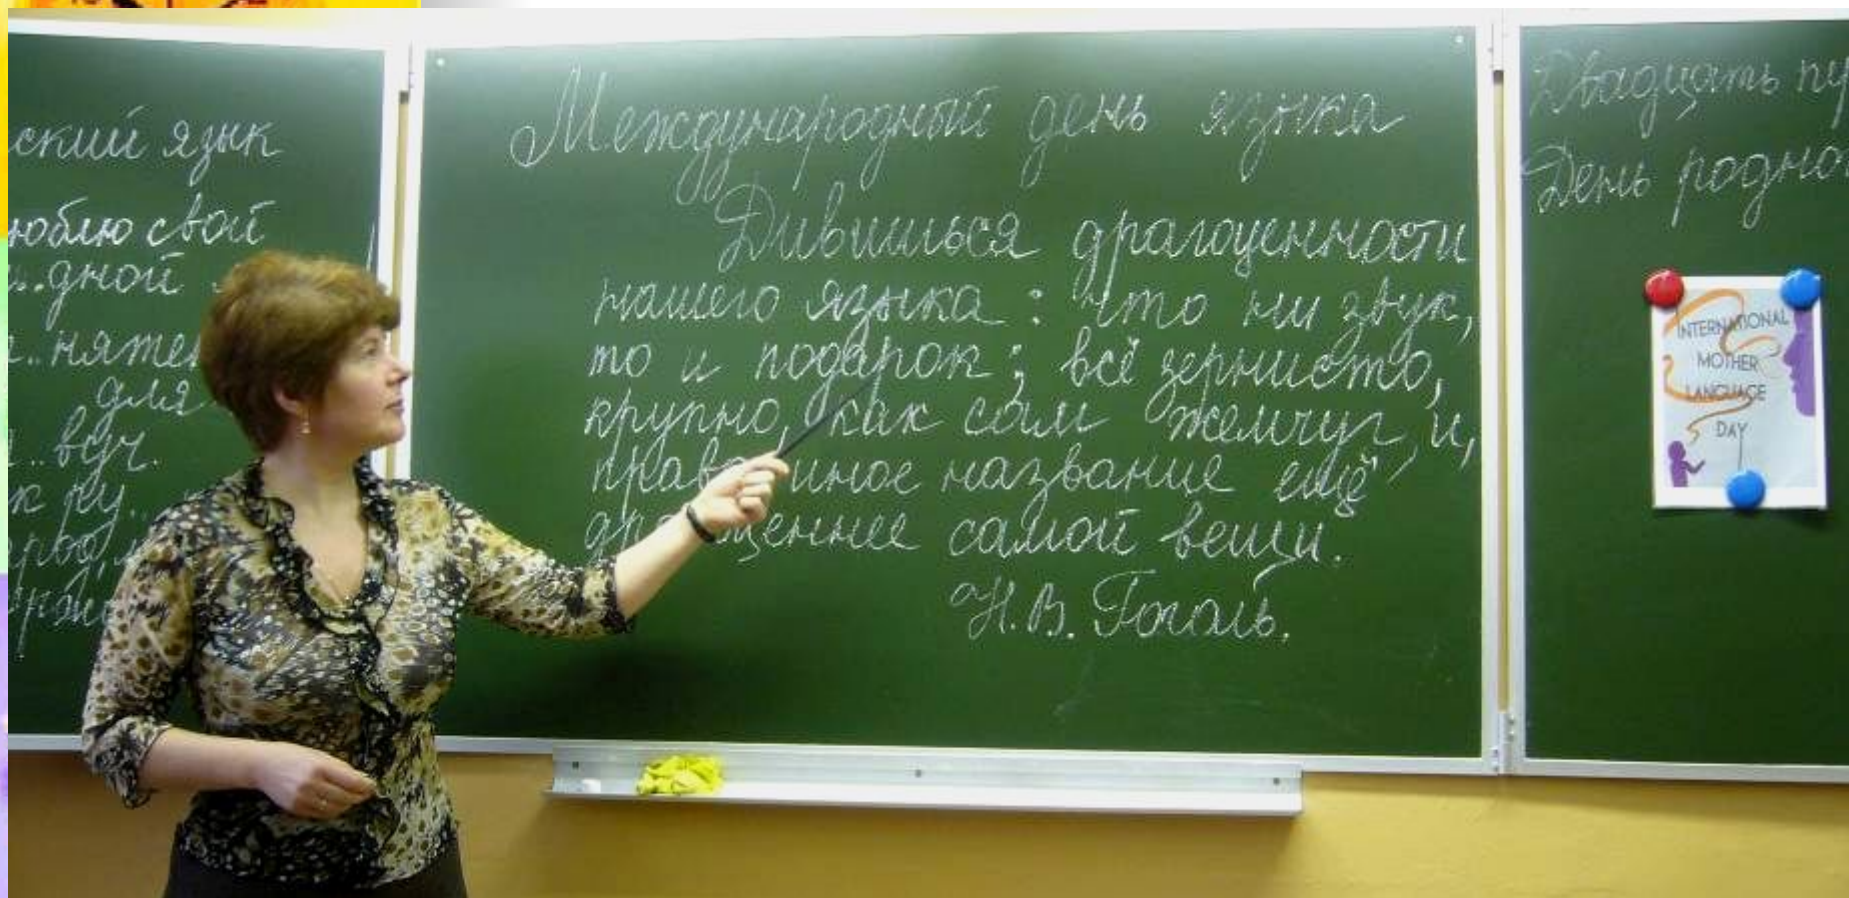 ский язык
юблю свой
дной
няте
для
вуч.
к ку..
Международный день языка
Дивишься драгоценности
нашего языка: что ни звук,
то и подарок; всё зернисто,
крупно, как сам жемчуг, и,
прав иное название ещё
др щеннее самой вещи.
Н.В. Гоголь.
Двадцать пе
День родно
INTERNATIONAL
MOTHER
LANGUAGE
DAY